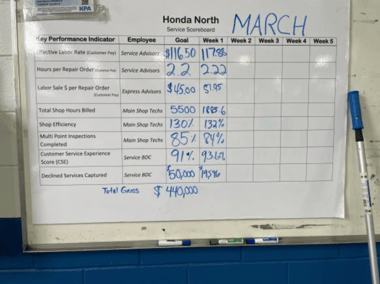 KPA
Honda North
Service Scoreboard
MARCH
Key Performance Indicator Employee Goal Week 1 Week 2 Week 3 Week 4 Week 5
Effective Labor Rate (Customer Pay) Service Advisors $116.50 117.86
Hours per Repair Order (Customer Pay) Service Advisors 2.2 2.22
Labor Sale $ per Repair Order Express Advisors $45.00 51.95
(Customer Pay)
Total Shop Hours Billed Main Shop Techs 5500 1885.6
Shop Efficiency Main Shop Techs 130% 132%
Multi Point Inspections Main Shop Techs 85% 84%
Completed
Customer Service Experience Service BDC 91%
Score (CSE)
Declined Services Captured Service BDC $50,000
Total Gross $440,000